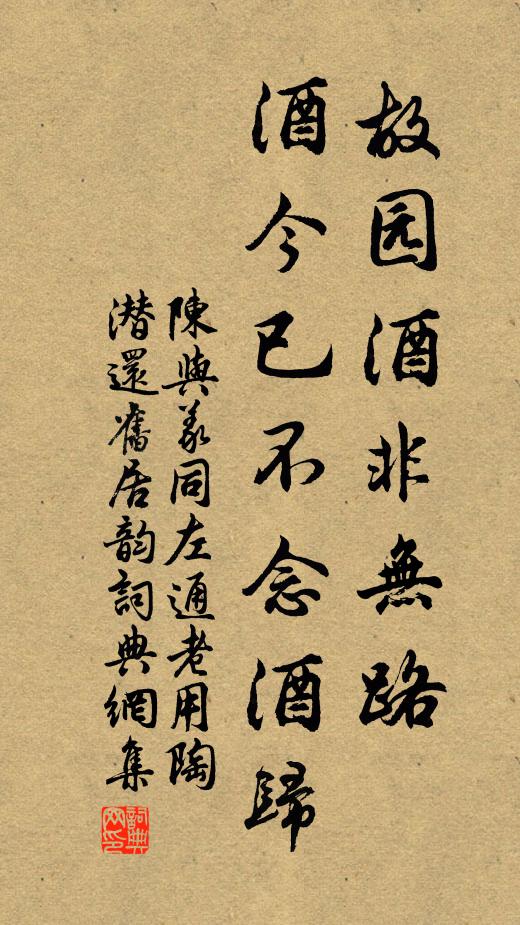 故园酒非無路
酒今已不念酒歸
陳與義同左通老用陶
潜還舊居韵詞典網集
詞典网印